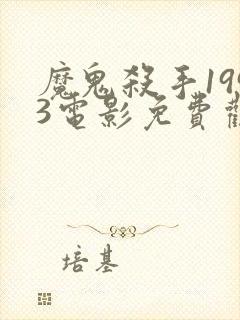 魔鬼殺手199
3電影免費觀
培基